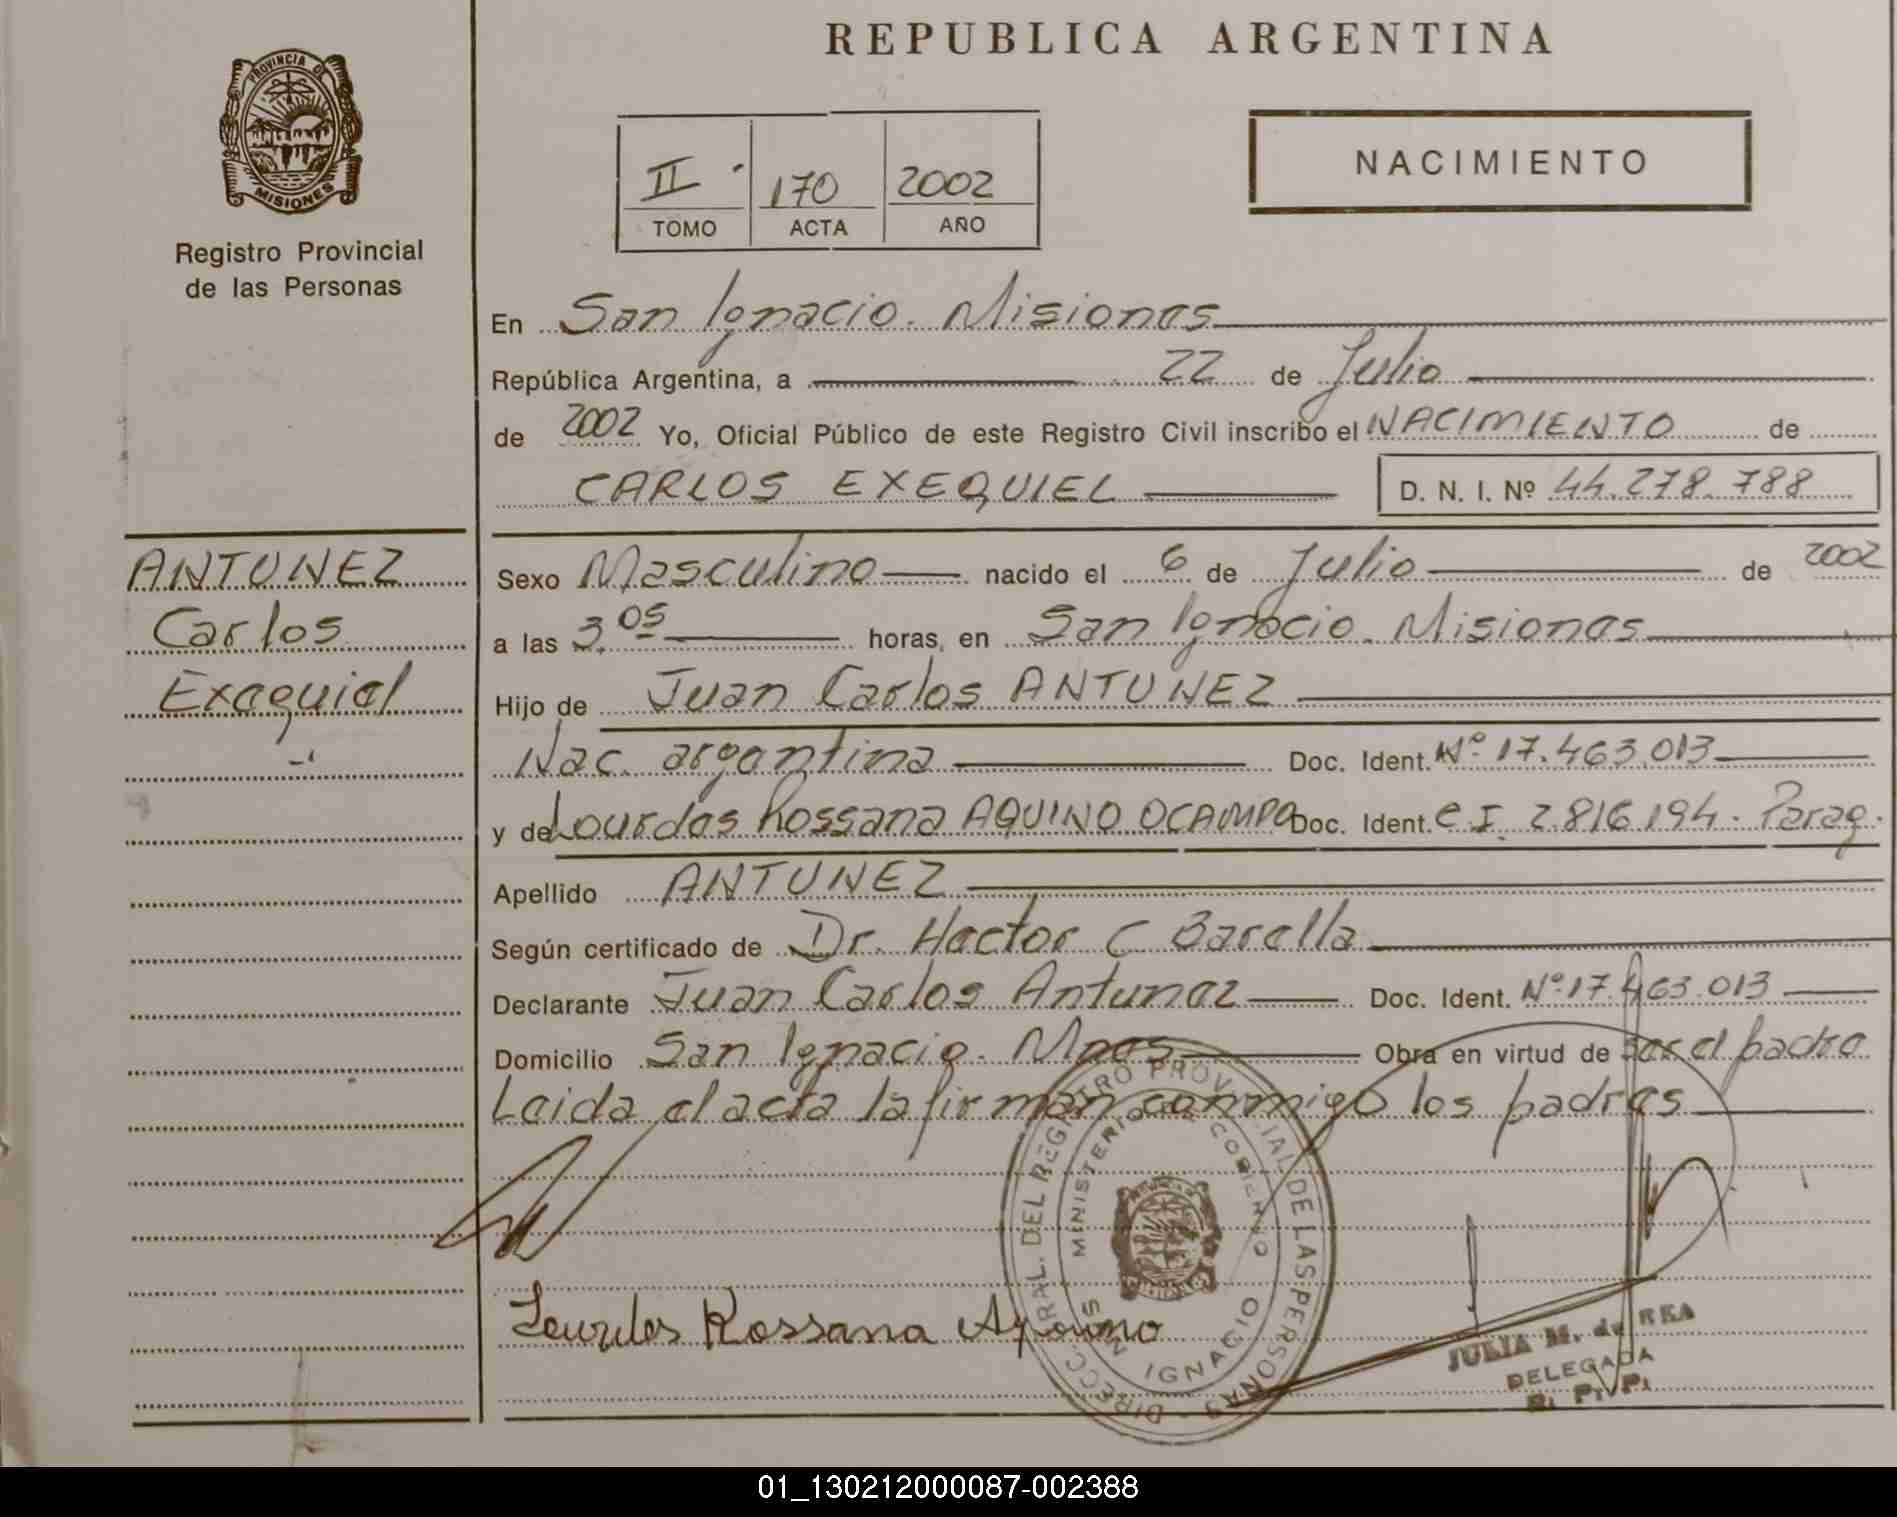 REPUBLICA ARGENTINA
PROVINCIA DE
MISIONES
Registro Provincial
de las Personas
II 170 2002
TOMO ACTA AÑO
NACIMIENTO
En San Ignacio. Misiones
República Argentina, a 22 de Julio
de 2002 Yo, Oficial Público de este Registro Civil inscribo el NACIMIENTO de
CARLOS EXEQUIEL D. N. I. Nº 44.278.788
ANTUNEZ
Carlos
Exequiel
Sexo Masculino nacido el 6 de Julio de 2002
a las 3.05 horas, en San Ignacio. Misiones
Hijo de Juan Carlos ANTUNEZ
Nac. argentina Doc. Ident. Nº 17.463.013
y de Lourdes Rossana AQUINO OCAMPO Doc. Ident. C.I. 2816194. Parag.
Apellido ANTUNEZ
Según certificado de Dr. Hector C Barella
Declarante Juan Carlos Antunez Doc. Ident. Nº 17.463.013
Domicilio San Ignacio. Mnes Obra en virtud de ser el padre
Leida el acta la firman conmigo los padres
DIRECC. GRAL. DEL REGISTRO PROVINCIAL DE LAS PERSONAS
MINISTERIO DE GOBIERNO
SAN IGNACIO
Lourdes Rossana Aquino
JULIA M. de REA
DELEGADA
R. P. P.
01_130212000087-002388